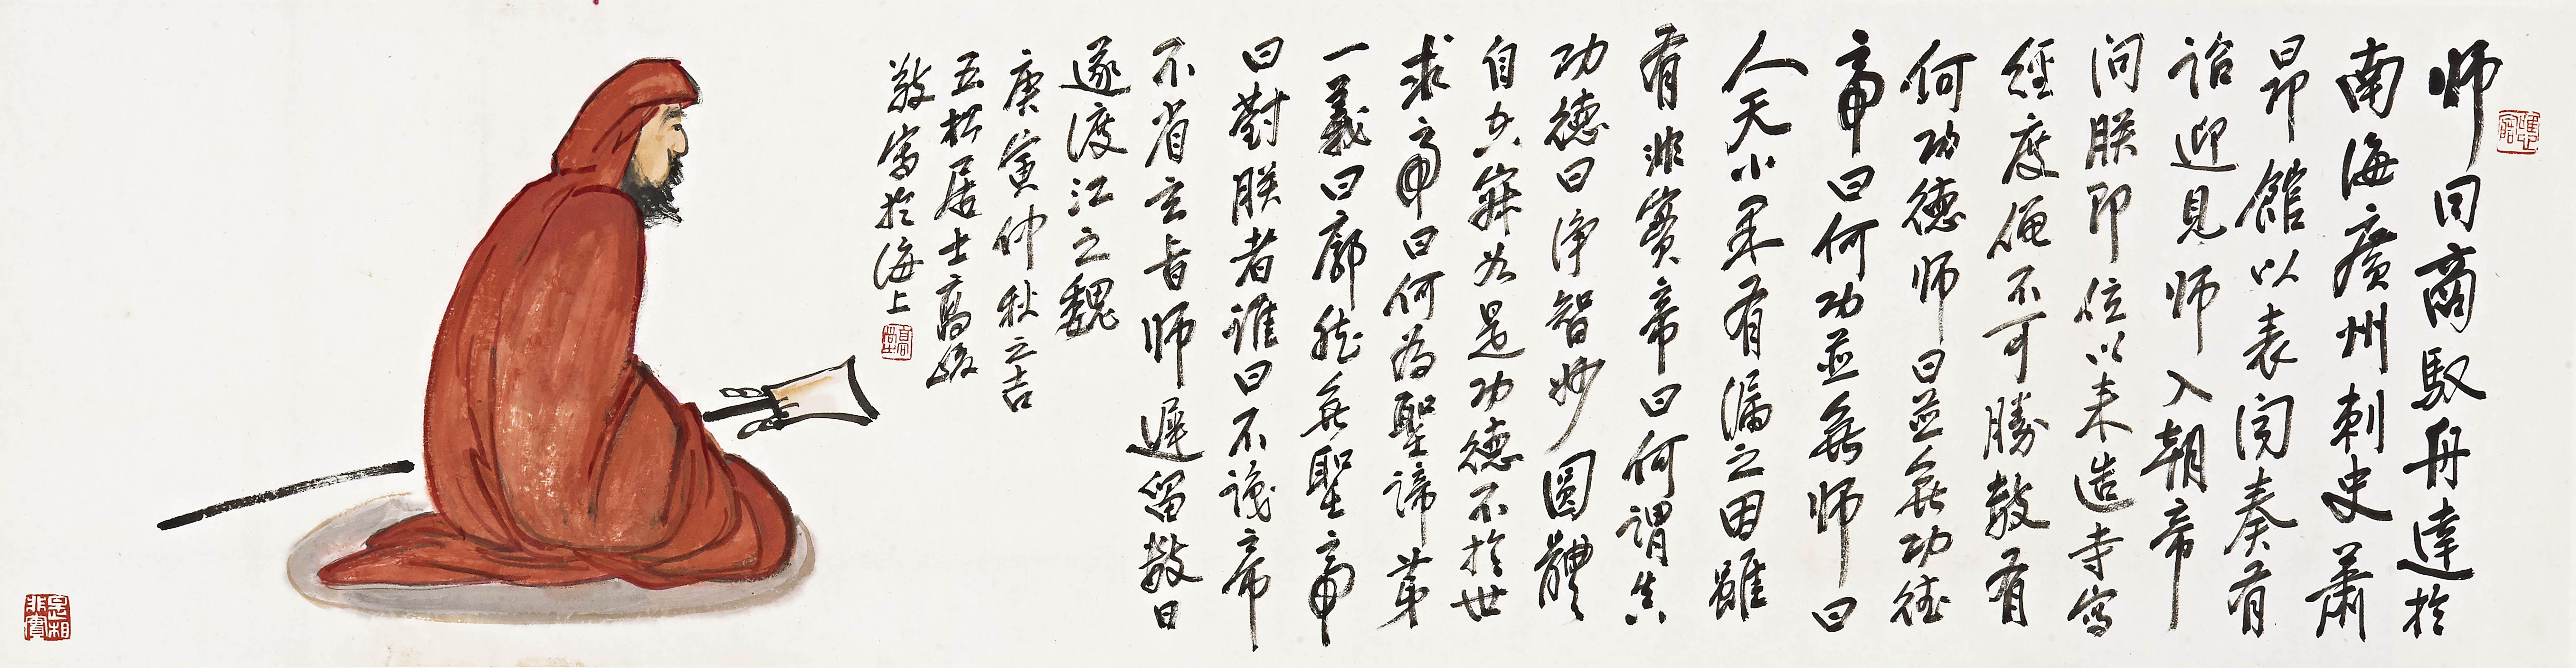 师同商馭舟達於
南海廣州刺史蕭
昂館以表闻奏有
詔迎見师入朝帝
问朕即位以来造寺寫
經度僧不可勝数有
何功德师曰並無功德
帝曰何功並無师曰
人天小果有漏之因雖
有非實帝曰何謂真
功德曰淨智妙圓體
自空寂如是功德不於世
求帝曰何為聖諦第
一義曰廓然無聖帝
曰對朕者谁曰不識帝
不省玄旨师遲留数日
遂渡江之魏
庚寅仲秋之吉
五松居士高
敬寫於海上
是相非實